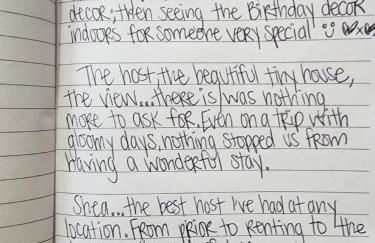 decor, then seeing the Birthday decor
indoors for someone very special ü ♡x♡
The host the beautiful tiny house,
the view...there is/was nothing
more to ask for. Even on a trip with
gloomy days, nothing stopped us from
Having a wonderful stay.
Shea...the best host I've had at any
location. From prior to renting to the